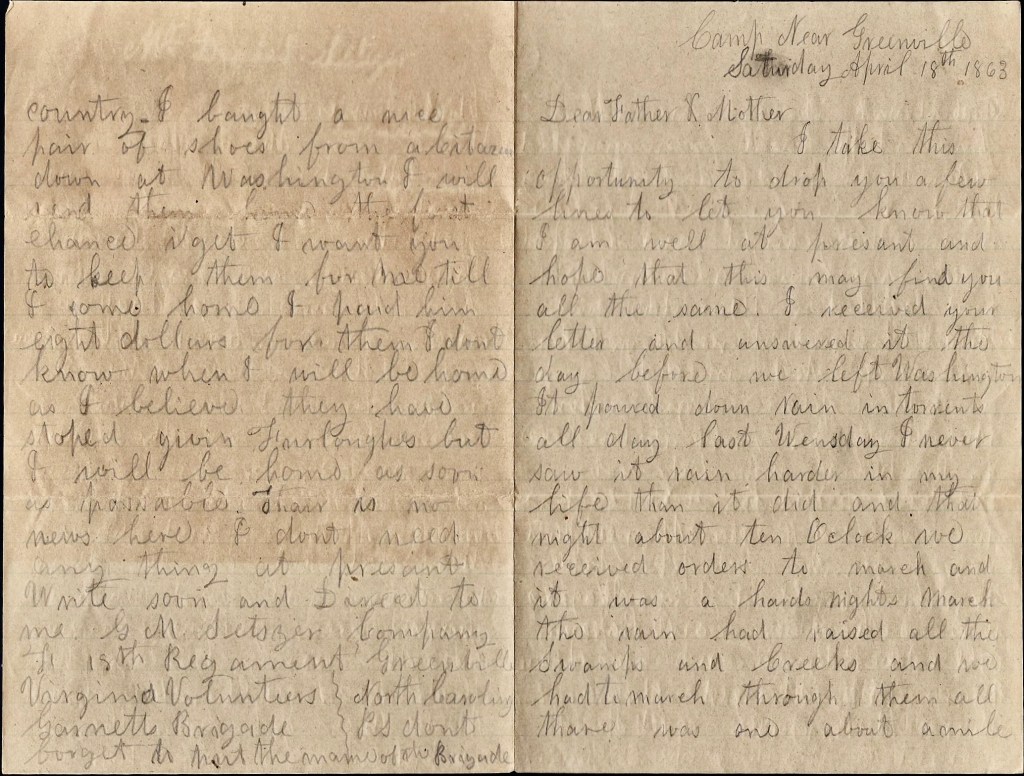 Camp Near Greenville
Saturday April 18th 1863
Dear Father & Mother
I take this
opportunity to drop you a few
lines to let you know that
I am well at presant and
hope that this may find you
all the same. I received your
letter and answered it the
day before we left Washington
It poured down rain in torrents
all day last Wensday I never
saw it rain harder in my
life than it did and that
night about ten Oclock we
received orders to march and
it was a hard nights march
the rain had raised all the
Swamps and Creeks and we
had to march through them all
thare was one about a mile
country. I baught a nice
pair of shoes from a Citazen
down at Washington I will
send them home the first
chance i get I want you
to keep them for me till
I come home I paid him
eight dollars for them I dont
know when I will be home
as I believe they have
stoped givin Furloughs but
I will be home as soon
as possable. Thair is no
news here I dont need
any thing at presant
Write soon and Direct to
me G M Setszer Company
18th Regament Greenville
Virginia Volunteers } North Carolina
Garnetts Brigade } PS dont
forget to put the name of the Brigade